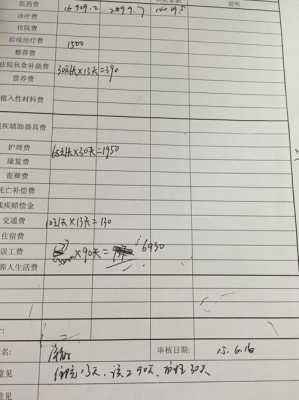 医药费 2099.7
诊疗费
住院费
后续治疗费 1500
整容费
住院伙食补助费 30元/天×13天=390
营养费
植入性材料费
残疾辅助器具费
护理费 65元/天×30天=1950
康复费
丧葬费
死亡补偿费
残疾赔偿金
交通费 10元/天×13天=130
住宿费
误工费 77 ×90天= 6930
养人生活费
名: 审核日期: 15.6.16
意见 住院13天、误工90天、护理30天
意见